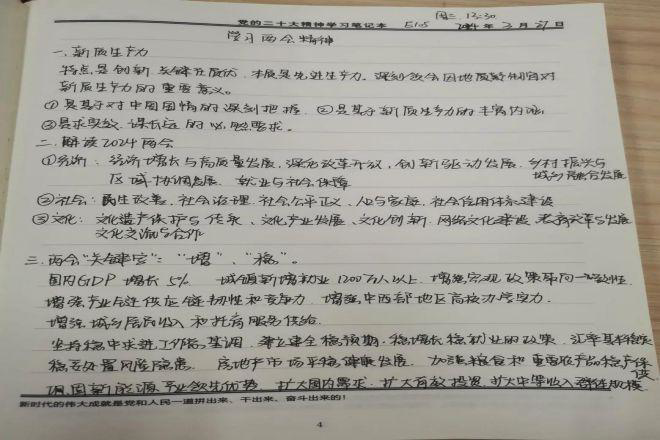 周三 12:30
党的二十大精神学习笔记本 E105 2024 年 3 月 27 日
学习两会精神
一、新质生产力
特点是创新,关键在质优,本质是先进生产力。深刻领会因地制宜对
新质生产力的重要意义。
①是基于对中国国情的深刻把握 ②是基于新质生产力的丰富内涵
③是求实效、谋长远的必然要求。
二、解读2024两会
①经济:经济增长与高质量发展,深化改革开放,创新驱动发展,乡村振兴与
区域协调发展 就业与社会保障 城乡融合发展
②社会:民生改善,社会治理,社会公平正义,人口与家庭,社会信用体系建设
③文化:文化遗产保护与传承,文化产业发展,文化创新,网络文化建设,改革与发展
文化交流与合作
三、两会"关键字":"增"、"稳"。
国内GDP增长5% 城镇新增就业1200万人以上 增强宏观政策取向一致性
增强产业链供应链韧性和竞争力 增强中西部地区高校办学实力
增强城乡居民收入和托育服务供给
坚持稳中求进工作总基调 稳预期、稳增长稳就业的政策 汇率基本稳定
稳妥处置风险隐患 房地产市场平稳健康发展 加强粮食和重要农产品稳产保供
巩固新能源产业领先优势 扩大国内需求 扩大有效投资 扩大中等收入群体规模
新时代的伟大成就是党和人民一道拼出来、干出来、奋斗出来的!
4